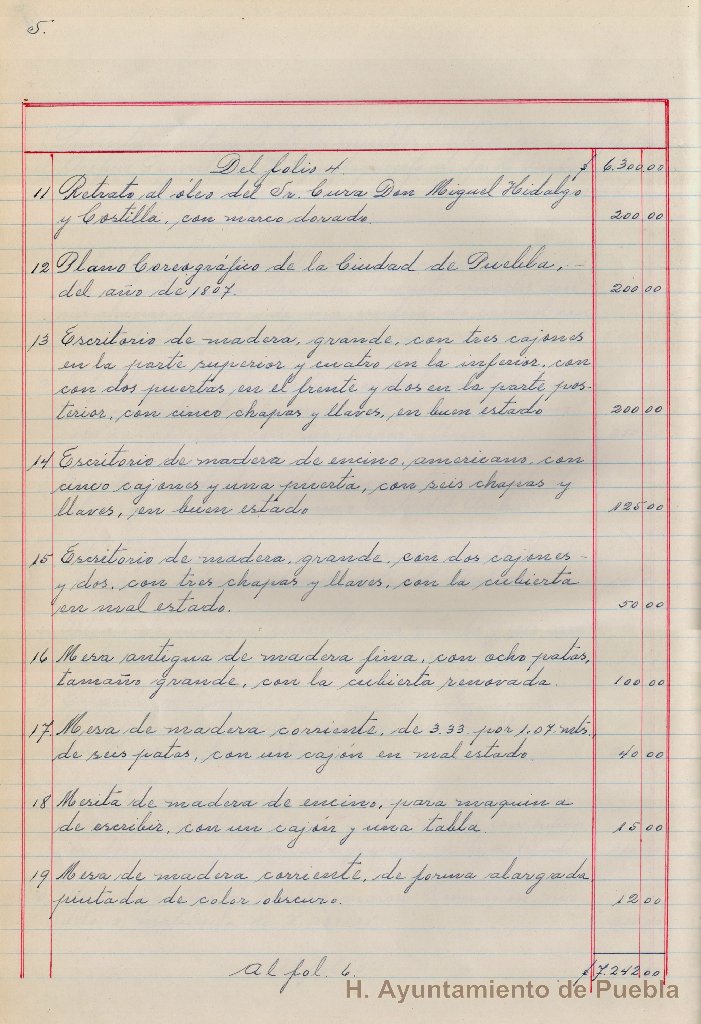 5.
Del folio 4. $ 6.300,00
11 Retrato al óleo del Sr. Cura Don Miguel Hidalgo
y Costilla, con marco dorado. 200 00
12 Plano Coreográfico de la Ciudad de Puebla, -
del año de 1807. 200 00
13 Escritorio de madera, grande, con tres cajones
en la parte superior y cuatro en la inferior, con
con dos puertas en el frente y dos en la parte pos-
terior, con cinco chapas y llaves, en buen estado 200 00
14 Escritorio de madera de encino, americano, con
cinco cajones y una puerta, con seis chapas y
llaves, en buen estado 125 00
15 Escritorio de madera, grande, con dos cajones -
y dos, con tres chapas y llaves, con la cubierta
en mal estado. 50 00
16 Mesa antigua de madera fina, con ocho patas,
tamaño grande, con la cubierta renovada. 100 00
17 Mesa de madera corriente, de 3.33 por 1.07 mts.,
de seis patas, con un cajón en mal estado. 40 00
18 Mesita de madera de encino, para maquina
de escribir, con un cajón y una tabla. 15 00
19 Mesa de madera corriente, de forma alargada,
pintada de color obscuro. 12 00
Al fol. 6. $ 7.242 00
H. Ayuntamiento de Puebla